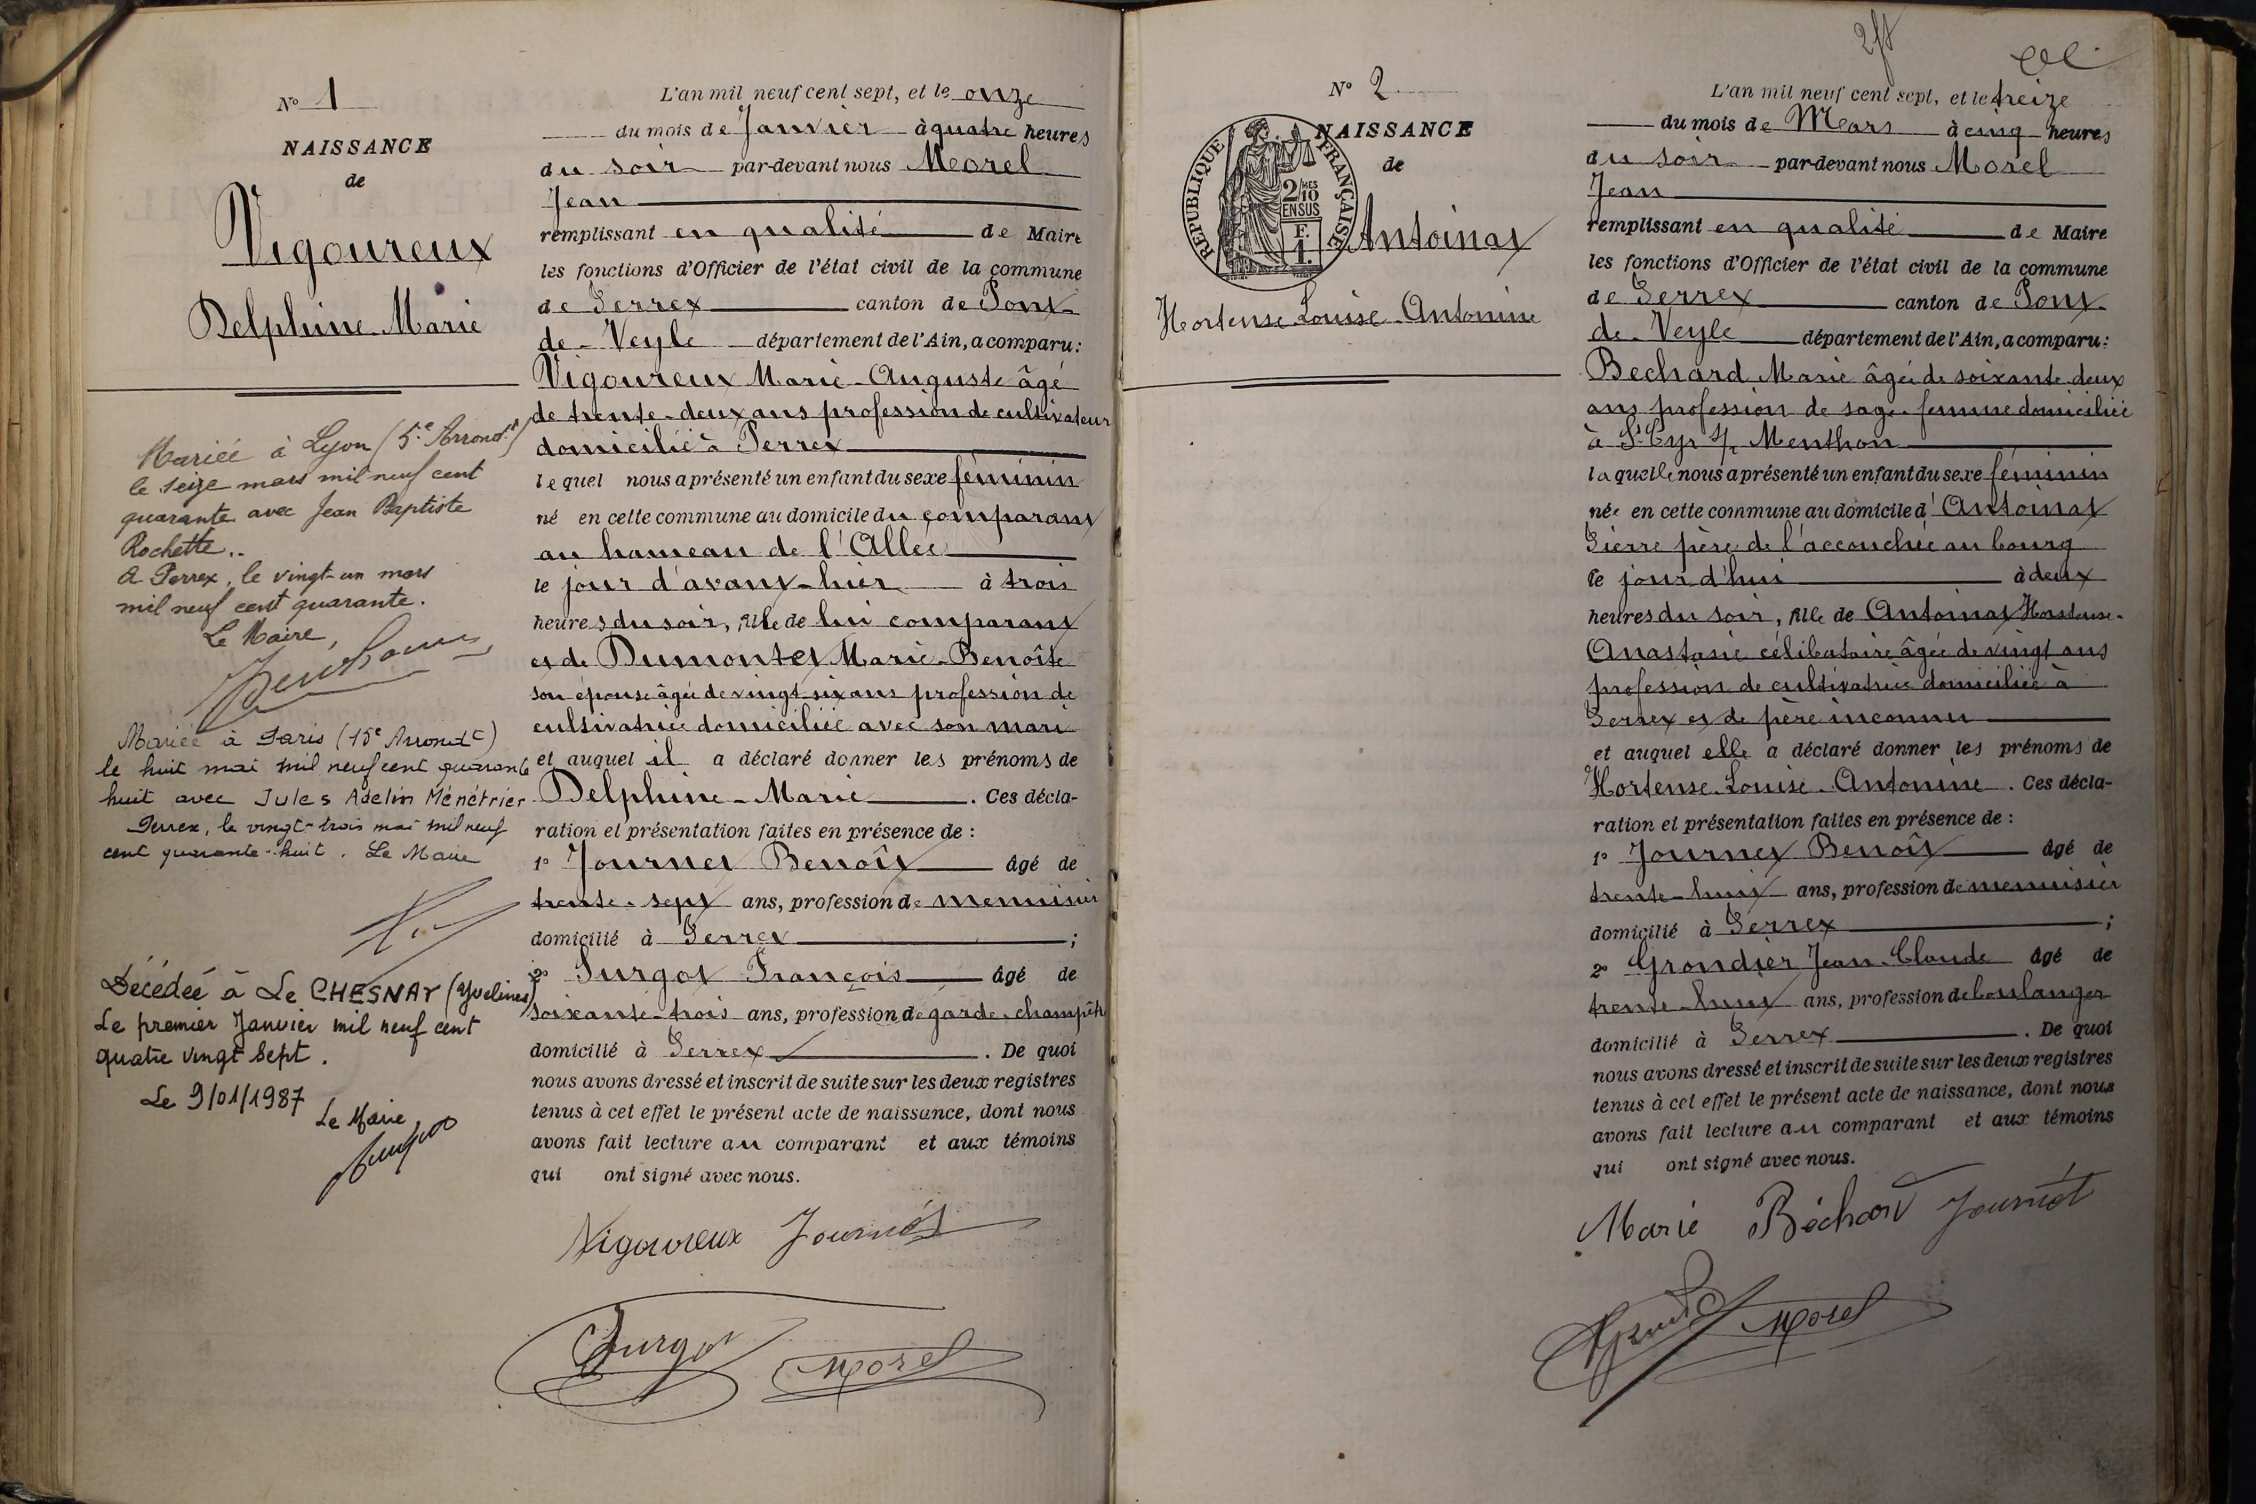 N° 1
NAISSANCE
de
Vigoureux
Delphine Marie
Mariée à Lyon (5e Arrondt)
le seize mars mil neuf cent
quarante avec Jean Baptiste
Rochette..
A Perrex, le vingt-un mars
mil neuf cent quarante.
Le Maire,
Mariée à Paris (15e Arrondt)
le huit mai mil neuf cent quarante
huit avec Jules Adelin Ménétrier
Perrex, le vingt-trois mai mil neuf
cent quarante-huit. Le Maire
Décédée à Le CHESNAY (Yvelines)
Le premier Janvier mil neuf cent
quatre vingt Sept.
Le 9/01/1987
Le Maire,
L'an mil neuf cent sept, et le onze
du mois de Janvier à quatre heures
du soir par-devant nous Morel
Jean
remplissant en qualité de Maire
les fonctions d'Officier de l'état civil de la commune
de Perrex canton de Pont
de-Veyle département de l'Ain, a comparu:
Vigoureux Marie-Auguste âgé
de trente-deux ans profession de cultivateur
domicilié à Perrex
lequel nous a présenté un enfant du sexe féminin
né en cette commune au domicile du comparant
au hameau de l'Allée
le jour d'avant-hier à trois
heures du soir, fille de lui comparant
et de Dumontet Marie-Benoîte
son épouse âgée de vingt six ans profession de
cultivatrice domiciliée avec son mari
et auquel il a déclaré donner les prénoms de
Delphine-Marie. Ces décla-
ration et présentation faites en présence de :
1° Journet Benoît âgé de
trente-sept ans, profession de menuisier
domicilié à Perrex ;
2° Purgot François âgé de
soixante-trois ans, profession de garde-champêtre
domicilié à Perrex. De quoi
nous avons dressé et inscrit de suite sur les deux registres
tenus à cet effet le présent acte de naissance, dont nous
avons fait lecture au comparant et aux témoins
qui ont signé avec nous.
Vigoureux Journet
Purgot Morel
N° 2
NAISSANCE
de
RÉPUBLIQUE FRANÇAISE
2/10MES
EN SUS
F.
1.
Antoinat
Hortense-Louise-Antonine
L'an mil neuf cent sept, et le treize
du mois de Mars à cinq heures
du soir par-devant nous Morel
Jean
remplissant en qualité de Maire
les fonctions d'Officier de l'état civil de la commune
de Perrex canton de Pont
de-Veyle département de l'Ain, a comparu:
Bechard Marie âgée de soixante-deux
ans profession de sage-femme domiciliée
à St Cyr s/ Menthon
laquelle nous a présenté un enfant du sexe féminin
née en cette commune au domicile d'Antoinat
Pierre père de l'accouchée au bourg
le jour d'hui à deux
heures du soir, fille de Antoinat Hortense-
Anastasie célibataire âgée de vingt ans
profession de cultivatrice domiciliée à
Perrex et de père inconnu
et auquel elle a déclaré donner les prénoms de
Hortense-Louise-Antonine. Ces décla-
ration et présentation faites en présence de :
1° Journet Benoît âgé de
trente-huit ans, profession de menuisier
domicilié à Perrex ;
2° Grondier Jean-Claude âgé de
trente-huit ans, profession de boulanger
domicilié à Perrex. De quoi
nous avons dressé et inscrit de suite sur les deux registres
tenus à cet effet le présent acte de naissance, dont nous
avons fait lecture au comparant et aux témoins
qui ont signé avec nous.
Marie Béchard Journet
Morel